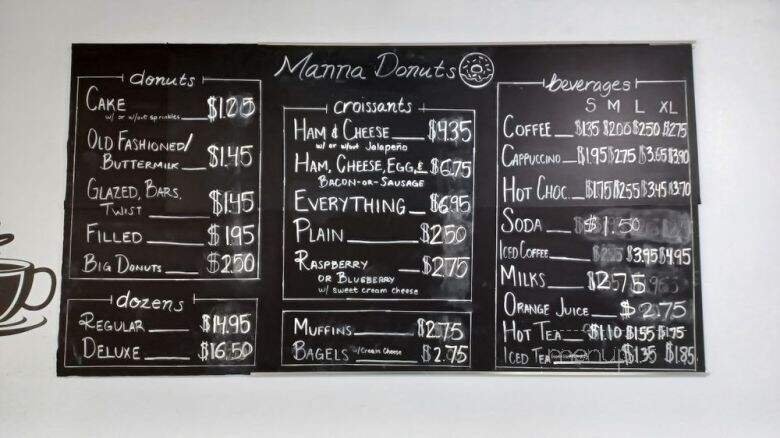 Manna Donuts
donuts
CAKE $1.25
w/ or w/out sprinkles
OLD FASHIONED/
BUTTERMILK $1.45
GLAZED, BARS,
TWIST $1.45
FILLED $1.95
BIG DONUTS $2.50
dozens
REGULAR $14.95
DELUXE $16.50
croissants
HAM & CHEESE $4.35
w/ or w/out Jalapeño
HAM, CHEESE, EGG & $6.75
BACON-OR-SAUSAGE
EVERYTHING $6.95
PLAIN $2.50
RASPBERRY $2.75
OR BLUEBERRY
w/ sweet cream cheese
MUFFINS $2.75
BAGELS w/Cream Cheese $2.75
beverages
S M L XL
COFFEE $1.35 $2.00 $2.50 $2.75
CAPPUCCINO $1.95 $2.75 $3.65 $3.90
HOT CHOC. $1.75 $2.55 $3.45 $3.70
SODA $1.50
ICED COFFEE $3.95 $4.95
MILKS $2.75
ORANGE JUICE $2.75
HOT TEA $1.10 $1.55 $1.75
ICED TEA $1.35 $1.85